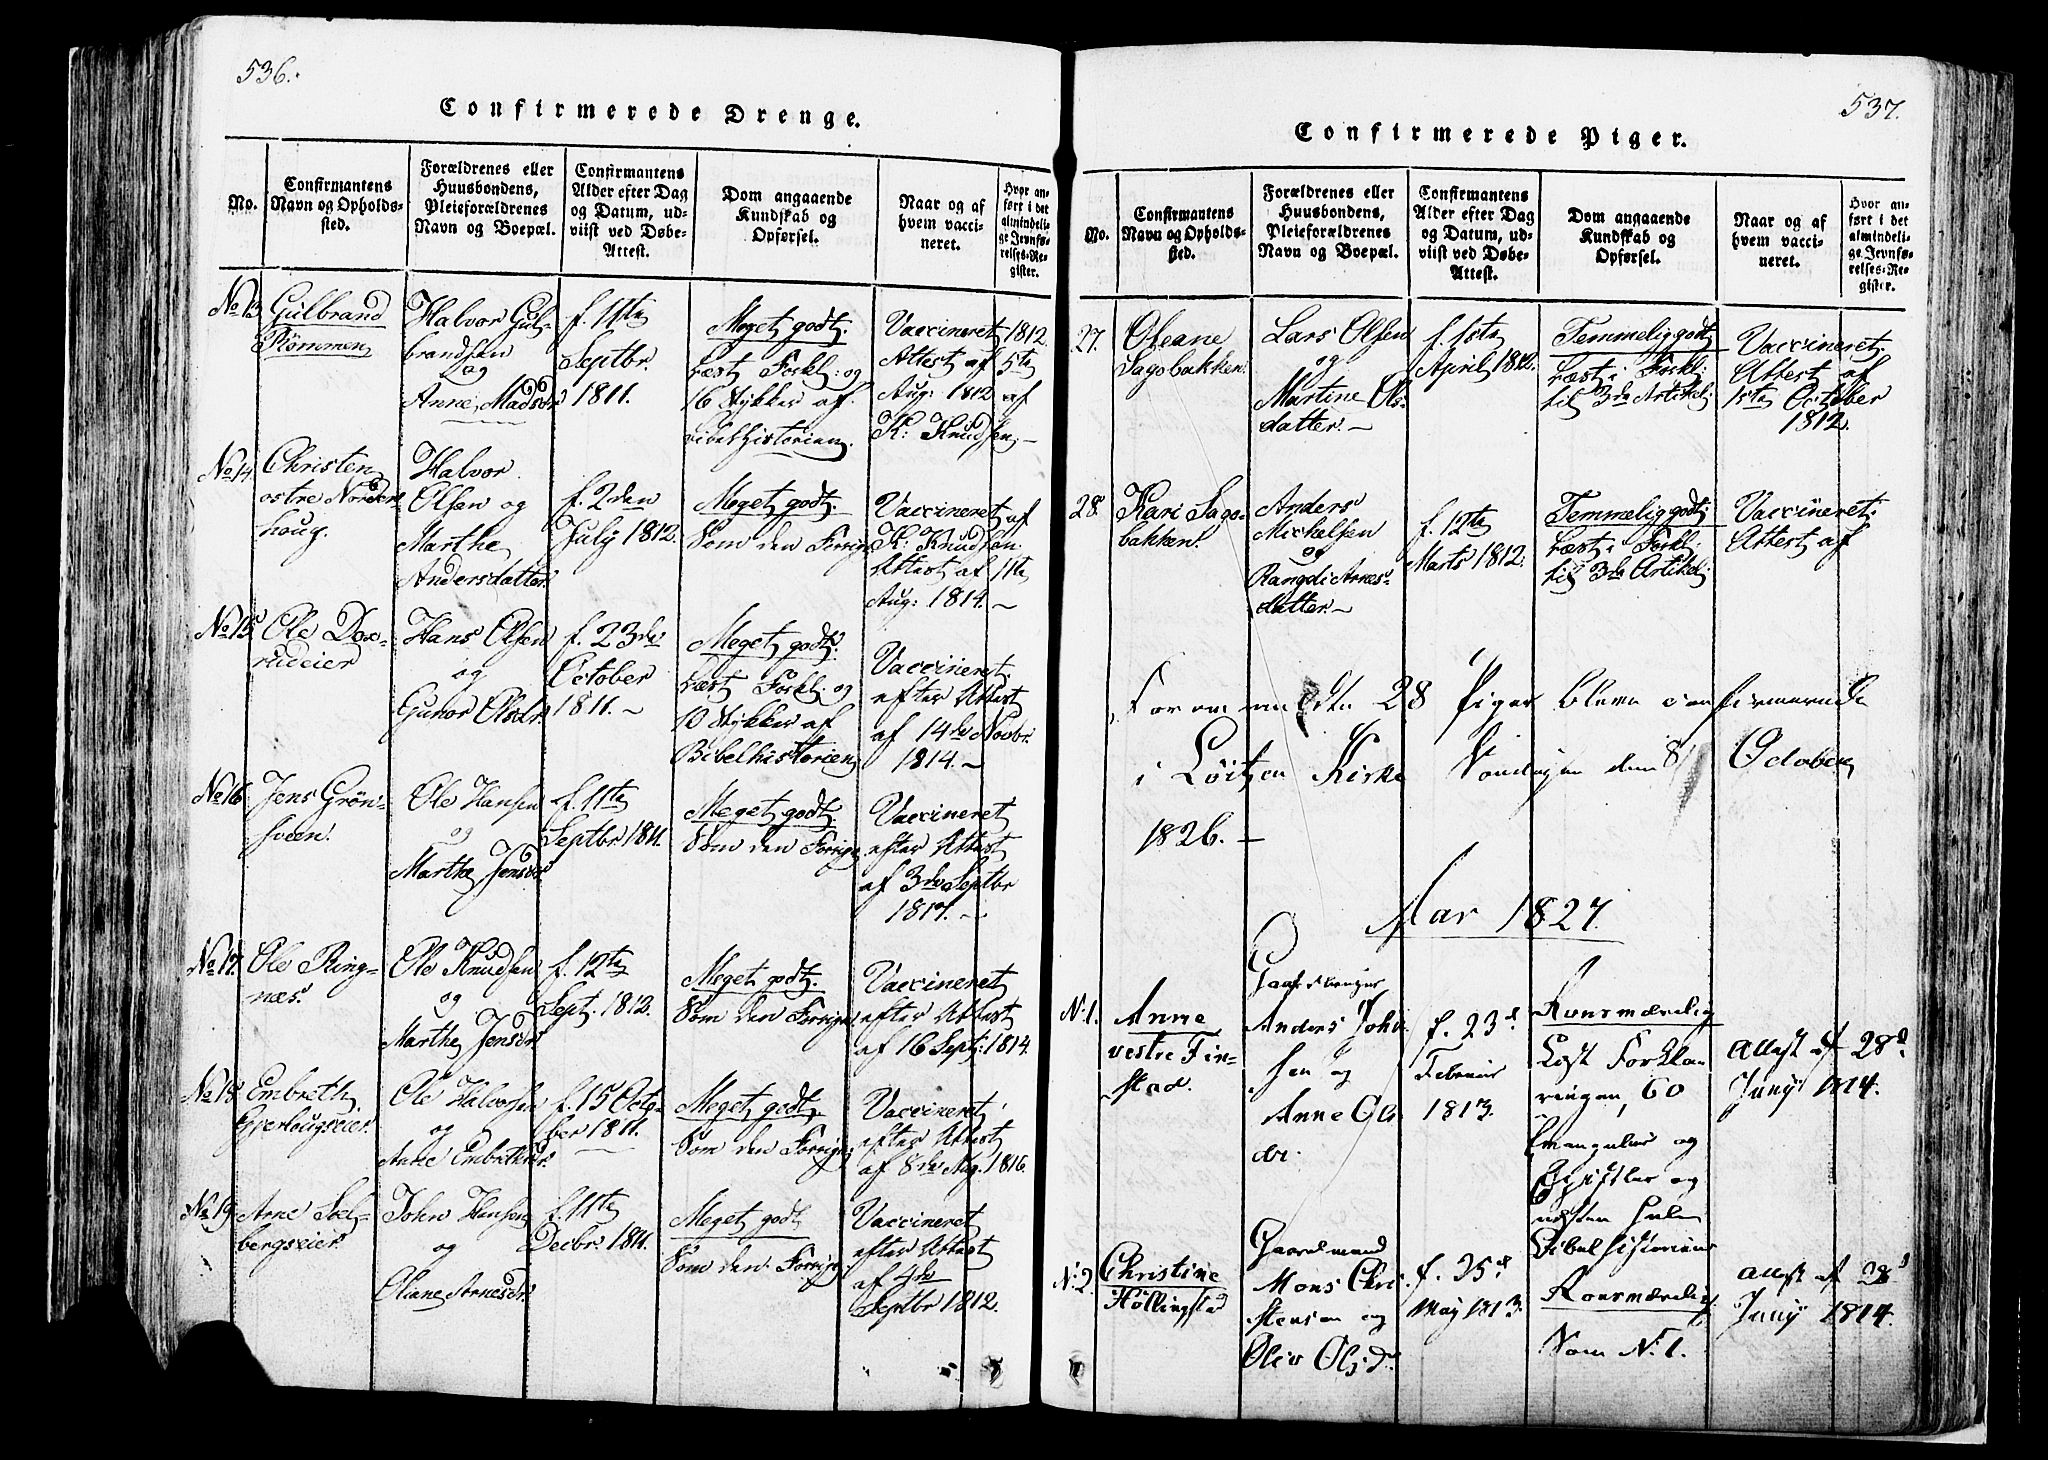 536.
Confirmerede Drenge.
No.
Confirmantens
Navn og Opholds-
sted.
Forældrenes eller
Huusbondens,
Pleieforældrenes
Navn og Boepæl.
Confirmantens
Alder efter Dag
og Datum, ud-
viist ved Døbe-
Attest.
Dom angaaende
Kundskab og
Opførsel.
Naar og af
hvem vacci-
neret.
Hvor an-
ført i det
almindeli-
ge Jevnfø-
relses-Re-
gister.
No 13
Gulbrand
Rømmen
Halvor Gul-
brandsen
og
Anne Madsdr
f. 11te
Septbr
1811.
Meget godt.
Læst Forkl: og
16 Stykker af
Bibelhistorien.
Vaccineret 1812.
Attest af 5te
Aug: 1812 af
K: Knudsen. –
No 14
Christen
ostre Norden-
houg.
Halvor
Olsen og
Marthe
Andersdatter.
f. 2den
July 1812.
Meget godt.
Som den Forrige
Vaccineret af
K: Knudsen.
Attest af 11te
Aug: 1814. –
No 15
Ole Dax-
rudeier
Hans Olsen
og
Gunor Olsdr.
f. 23de
October
1811. –
Meget godt.
Læst Forkl: og
10 Stykker af
Bibelhistorien
Vaccineret
efter Attest
af 14de Novbr.
1814. –
No 16
Jens Grøn-
sveen.
Ole Hansen
og
Marthe Jensdr.
f. 11te
Septbr 1811.
Meget godt.
Som den Forrige.
Vaccineret
efter Attest
af 3de Septbr
1817. –
No 17.
Ole Ring-
næs.
Ole Knudsen
og
Marthe Jensdr.
f. 12te
Sept. 1812.
Meget godt.
Som den Forrige.
Vaccineret
efter Attest
af 16 Sept: 1814.
No 18
Embreth
Gjerlougseier.
Ole Halvorsen
og
Anne Embrethsdr.
f. 15 Octo-
ber 1811.
Meget godt.
Som den Forrige.
Vaccineret
efter Attest
af 8de Aug. 1816.
No 19
Arne Soel-
bergseier.
John Hansen
og
Oliane Arnesdr.
f. 11te
Decbr. 1811.
Meget godt
Som den Forrige.
Vaccineret
efter Attest
af 4de
Septbr 1812.
537.
Confirmerede Piger.
No.
Confirmantens
Navn og Opholds-
sted.
Forældrenes eller
Huusbondens,
Pleieforældrenes
Navn og Boepæl.
Confirmantens
Alder efter Dag
og Datum, ud-
viist ved Døbe-
Attest.
Dom angaaende
Kundskab og
Opførsel.
Naar og af
hvem vacci-
neret.
Hvor an-
ført i det
almindeli-
ge Jevnfø-
relses-Re-
gister.
27.
Oleane
Sagobakken.
Lars Olsen
og
Martine Ols-
datter. –
f. 1ste
April 1812.
Temmelig godt
Læst i Forkl:
til 3de Artikel.
Vaccineret.
Attest af
1ste October
1812.
28
Kari Sago-
bakken.
Anders
Mickelsen
og
Rangdi Arnes-
datter. –
f. 12te
Marts 1812.
Temmelig godt.
Læst i Forkl:
til 3de Artikel.
Vaccineret.
Attest af
Forommeldte 28 Piger bleve confirmerede
i Løiten Kirke Søndagen den 8 October
1826. –
Aar 1827.
N: 1.
Anne
vestre Fin-
stad.
Anders Johan
sen og
Anne Ols
dr.
f. 23d
Februar
1813.
Roesværdig
Læst Forkla
ringen, 60
Evangelier og
Epistler og
næsten hele
Bibelhistorien
Attest af 28d
Juny 1814.
N: 2.
Christine
Høllingstad
Gaardmand
Mons Chri
stensen og
Oliv Olsd.
f. 25d
May 1813.
Roesværdig.
Som N: 1.
Attest af 28d
Juny 1814.